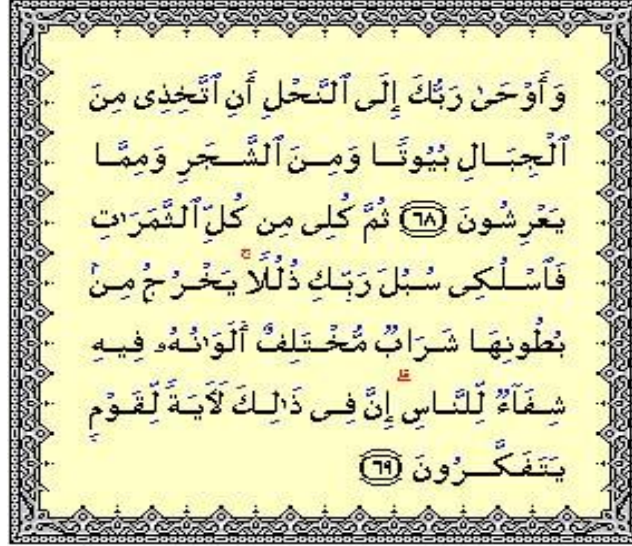 وَأَوْحَىٰ رَبُّكَ إِلَى ٱلنَّحْلِ أَنِ ٱتَّخِذِى مِنَ
ٱلْجِبَـالِ بُيُوتًـا وَمِـنَ ٱلشَّـجَرِ وَمِمَّـا
يَعْرِشُونَ ٦٨ ثُمَّ كُلِى مِن كُلِّ ٱلثَّمَرَٰتِ
فَٱسْـلُكِى سُبُلَ رَبِّـكِ ذُلُلًا ۚ يَخْـرُجُ مِـنۢ
بُطُونِهَا شَـرَابٌ مُّخْـتَلِفٌ أَلْوَٰنُـهُۥ فِيـهِ
شِـفَآءٌ لِّلنَّـاسِ ۗ إِنَّ فِـى ذَٰلِـكَ لَـَٔايَـةً لِّقَـوْمٍ
يَتَفَكَّـــرُونَ ٦٩